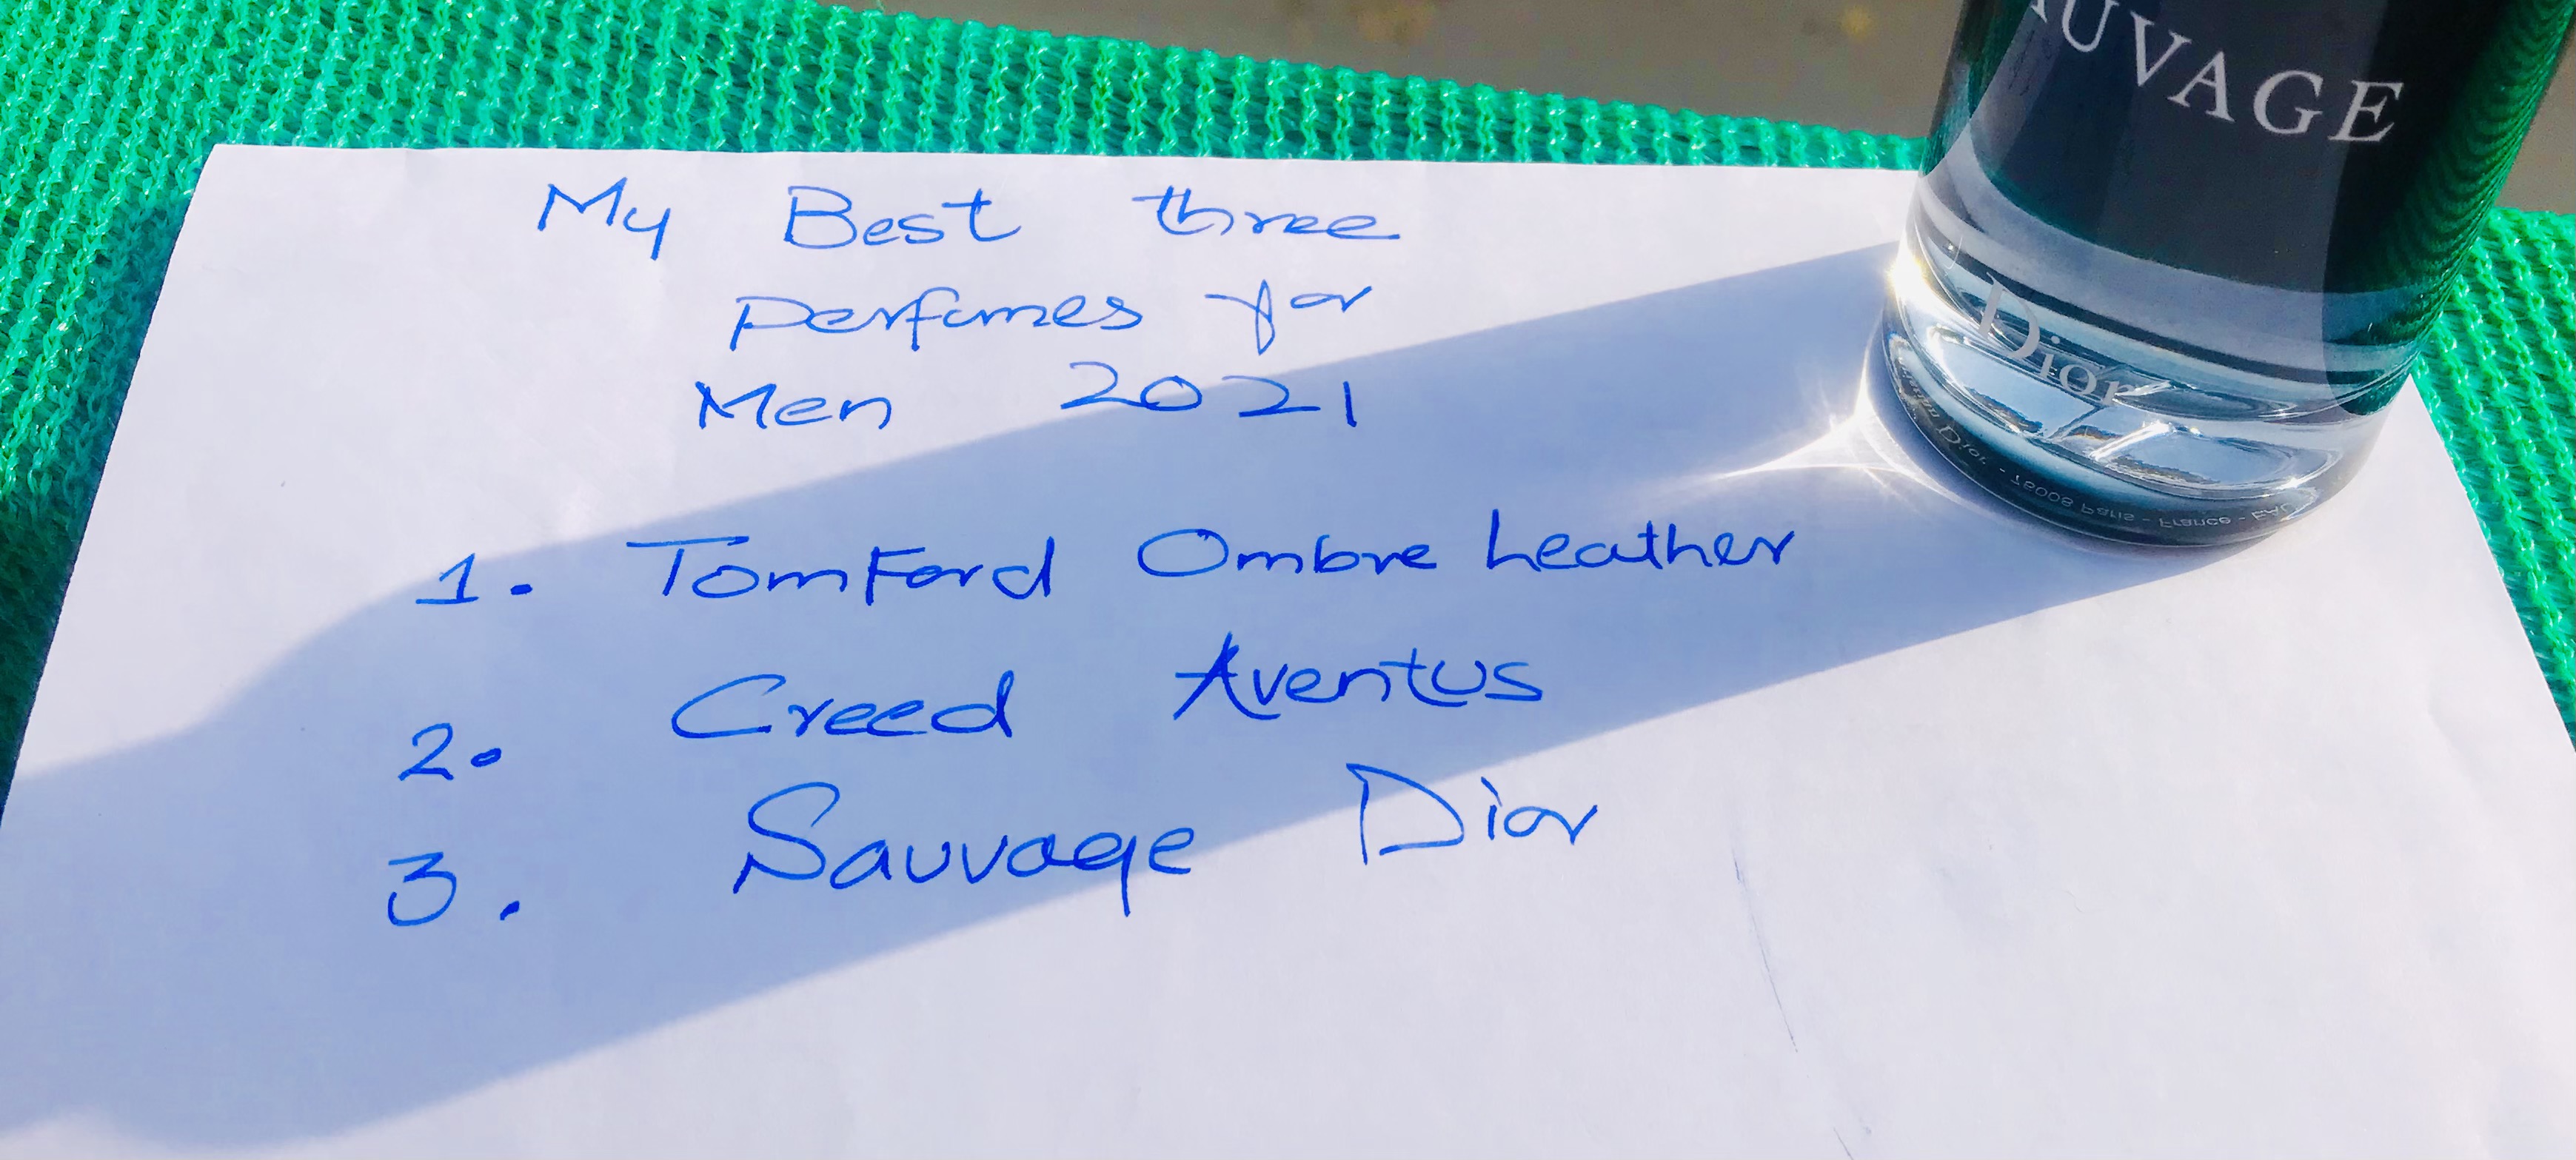 My Best three
Perfumes for
Men 2021
1. Tom Ford Ombre Leather
2. Creed Aventus
3. Sauvage Dior
AUVAGE
Dior
Dior - 75008 Paris - France - EAU